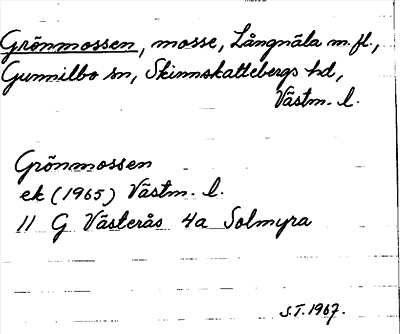 Grönmossen, mosse, Långnäla m.fl.,
Gunnilbo sn, Skinnskattebergs hd,
Västm. l.
Grönmossen
ek (1965) Västm. l.
11 G Västerås 4a Solmyra
S.T. 1967.